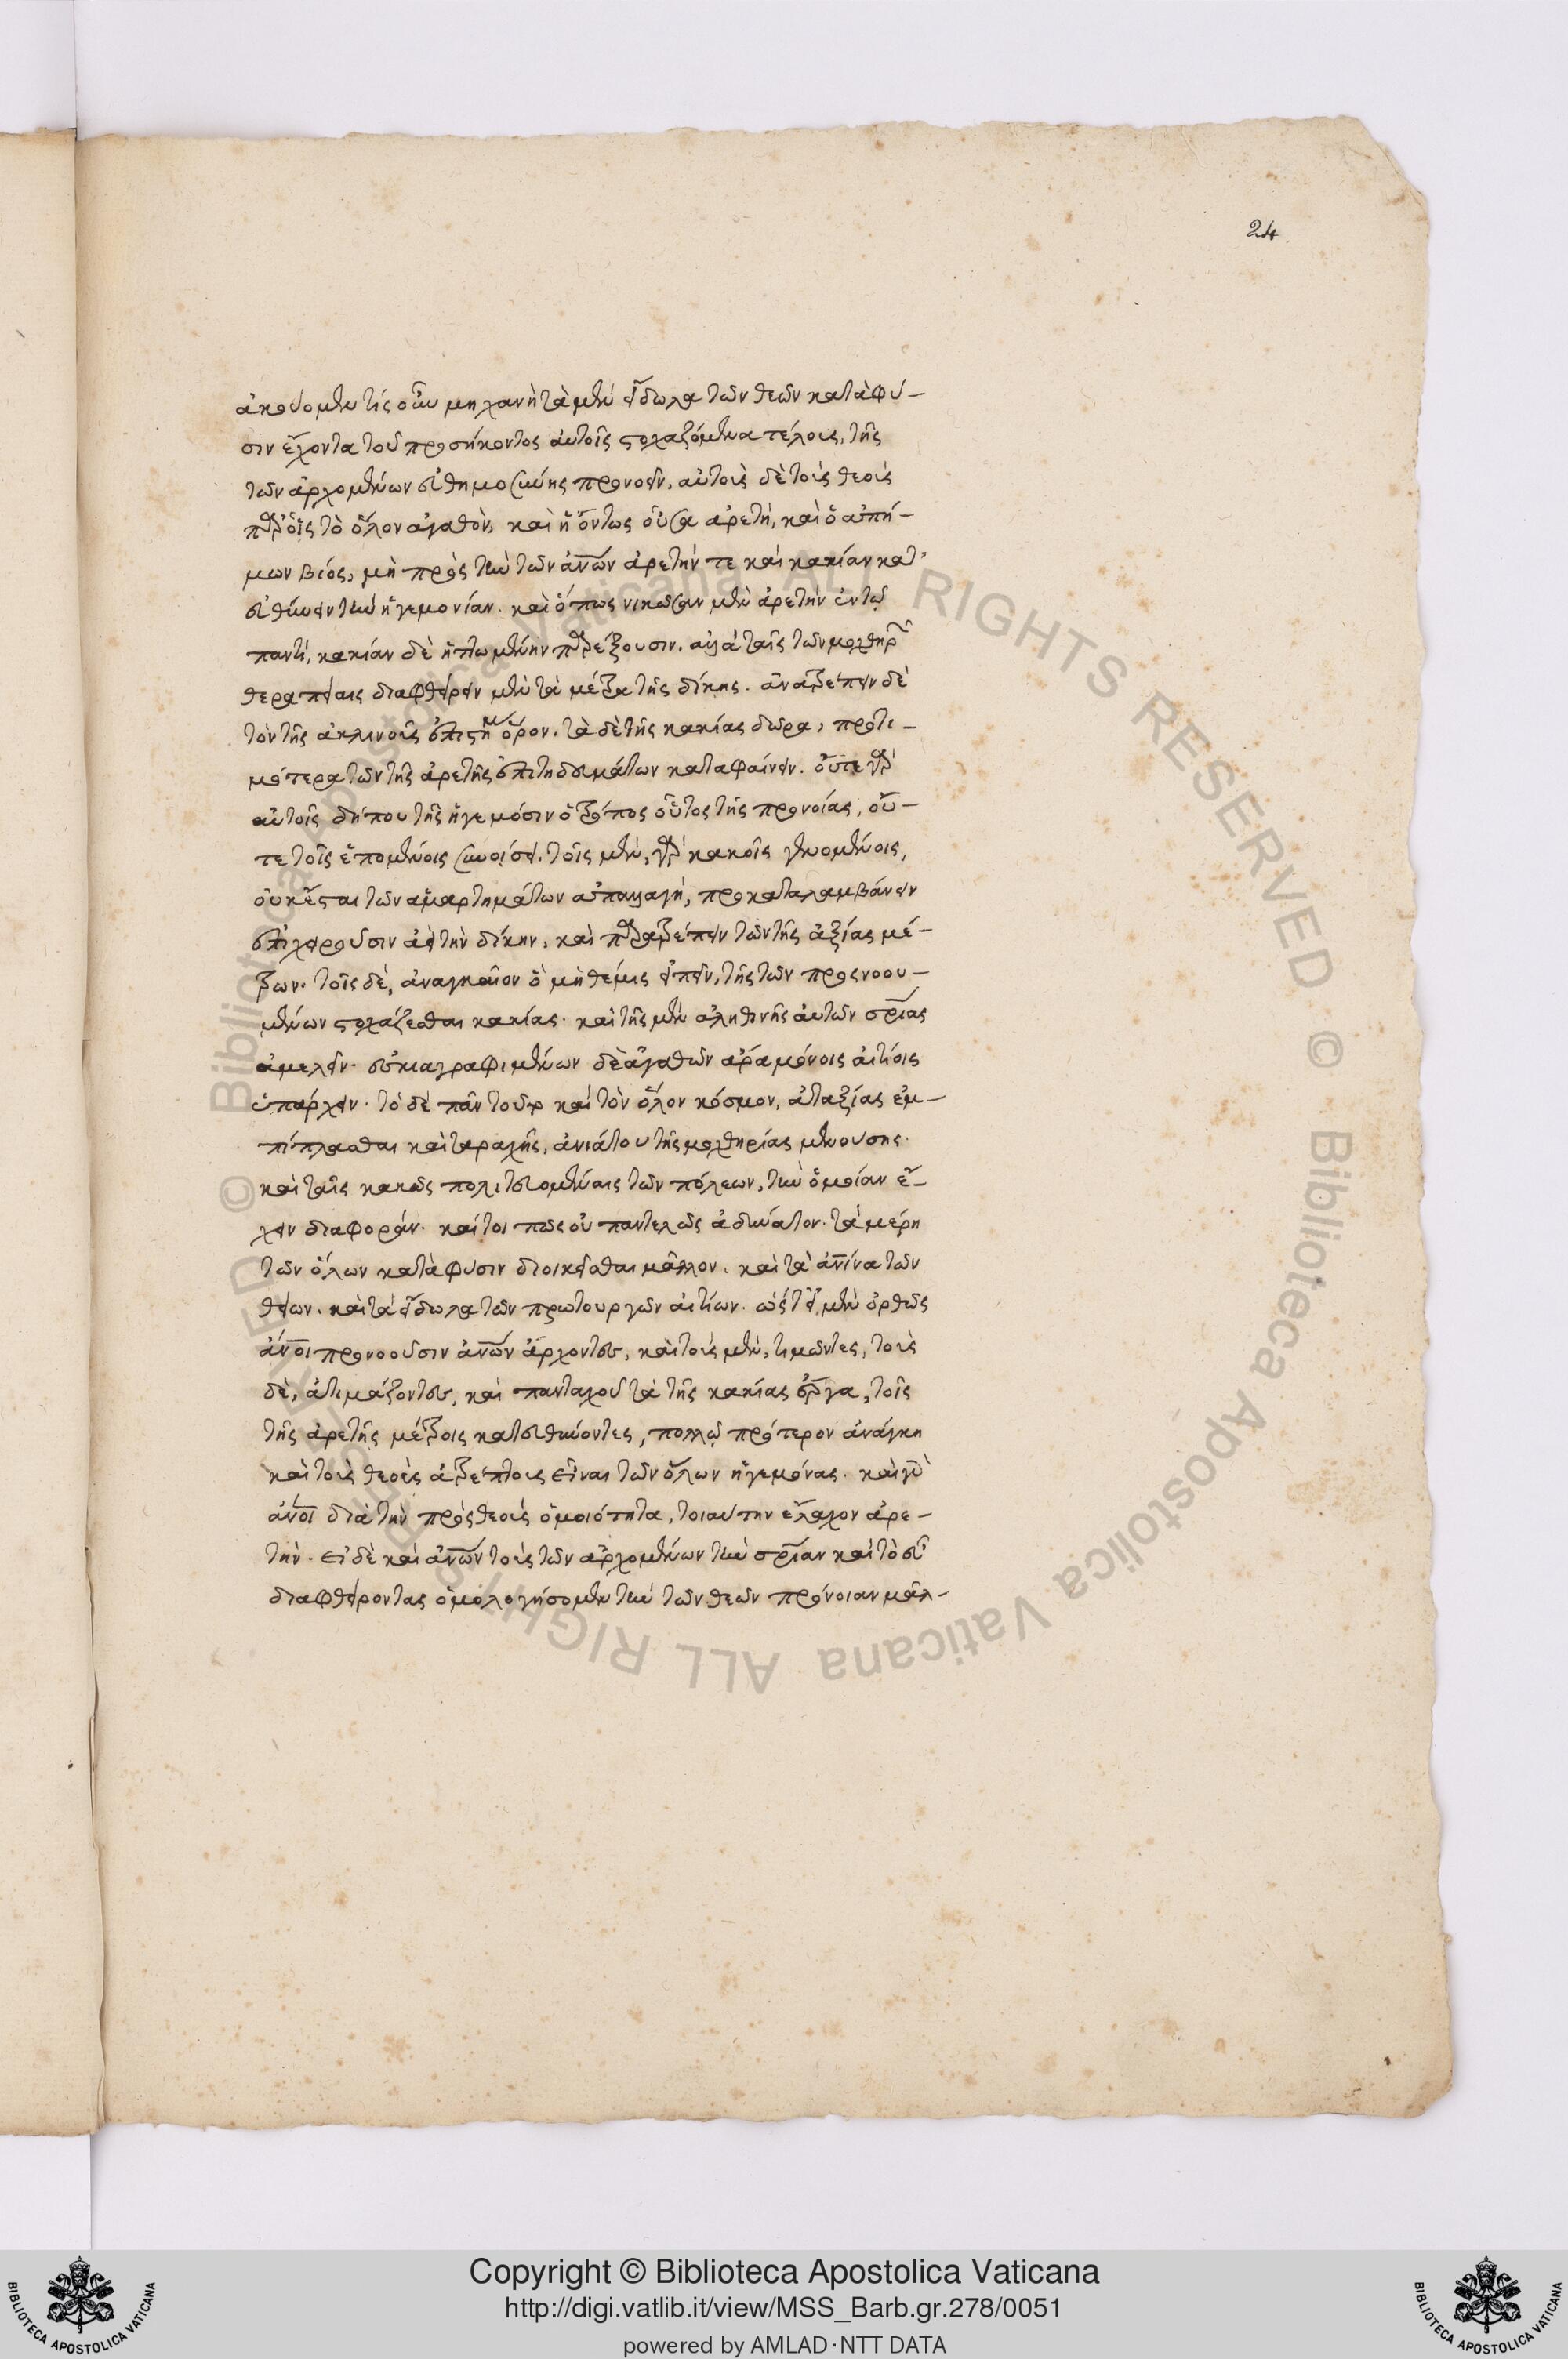 24
ἀκούομεν τίς οὖν μηχανὴ τὰ μὲν εἴδωλα τῶν θεῶν κατὰ φύ-
σιν ἔχοντα τοῦ προσήκοντος αὐτοῖς στοχαζόμενα τέλους, τῆς
τῶν ἀρχομένων εὐθημοσύνης προνοεῖν, αὐτοὺς δὲ τοὺς θεοὺς
παρ' οἷς τὸ ὅλον ἀγαθὸν, καὶ ἡ ὄντως οὖσα ἀρετὴ, καὶ ὁ ἀπή-
μων βίος, μὴ πρὸς τὴν τῶν ἀνων ἀρετήν τε καὶ κακίαν κατ'
εὐθύνειν τὴν ἡγεμονίαν. καὶ ὅπως νικῶσαν μὲν ἀρετὴν ἐν τῷ
παντὶ, κακίαν δὲ ἡττωμένην παρέξουσιν. ἀλλὰ ταῖς τῶν μοχθηρῶν
θεραπείαις διαφθείρειν μὲν τὰ μέτρα τῆς δίκης. ἀνατρέπειν δὲ
τὸν τῆς ἀκλινοῦς ἐπιστήμης ὅρον. τὰ δὲ τῆς κακίας δῶρα, προτι-
μότερα τῶν τῆς ἀρετῆς ἐπιτηδευμάτων καταφαίνειν. οὔτε γὰρ
αὐτοῖς δήπου τῆς ἡγεμόσιν ὁ τρόπος οὗτος τῆς προνοίας, οὔ-
τε τοῖς ἑπομένοις συνοίσει. τοῖς μὲν, γὰρ κακοῖς γενομένοις,
οὐκ ἔσται τῶν ἁμαρτημάτων ἀπαλλαγή, προκαταλαμβάνειν
ἐπιχειροῦσιν ἀεὶ τὴν δίκην, καὶ παρατρέπειν τῶν τῆς ἀξίας μέ-
τρων. τοῖς δὲ, ἀναγκαῖον ὃ μὴ θέμις εἰπεῖν, τῆς τῶν προενοου-
μένων στοχάζεσθαι κακίας. καὶ τῆς μὲν ἀληθινῆς αὐτῶν σρίας
ἀμελεῖν. ἐσκιαγραφημένων δὲ ἀγαθῶν ἄρα μόνοις αἰτίοις
ὑπάρχειν. τὸ δὲ πᾶν τοῦτο καὶ τὸν ὅλον κόσμον, ἀταξίας ἐμ-
πίπλασθαι καὶ ταραχῆς, ἀνιάτου τῆς μοχθηρίας μενούσης.
καὶ ταῖς κακῶς πολιτευομέναις τῶν πόλεων, τὴν ὁμοίαν ἔ-
χειν διαφοράν. καίτοι πῶς οὐ παντελῶς ἀδύνατον. τὰ μέρη
τῶν ὅλων κατὰ φύσιν διοικεῖσθαι μᾶλλον. καὶ τὰ ἀνινα τῶν
θείων. καὶ τὰ εἴδωλα τῶν πρωτουργῶν αἰτίων. ὥστ' εἰ μὲν ὀρθῶς
ἀνοι προνοοῦσιν ἀνων ἄρχοντες, καὶ τοὺς μὲν, τιμῶντες, τοὺς
δὲ, ἀτιμάζοντες, καὶ πανταχοῦ τὰ τῆς κακίας ἔργα, τοῖς
τῆς ἀρετῆς μέτροις κατευθύνοντες, πολλῷ πρότερον ἀνάγκη
καὶ τοὺς θεοὺς ἀτρέπτους εἶναι τῶν ὅλων ἡγεμόνας. καὶ γὰρ
ἀνοι διὰ τὴν πρὸς θεοὺς ὁμοιότητα, τοιαύτην ἔλαχον ἀρε-
τήν. εἰ δὲ καὶ ἀνων τοὺς τῶν ἀρχομένων τὴν σρίαν καὶ τὸ εὖ
διαφθείροντας ὁμολογήσομεν τὴν τῶν θεῶν πρόνοιαν μᾶλ-
Copyright © Biblioteca Apostolica Vaticana
http://digi.vatlib.it/view/MSS_Barb.gr.278/0051
powered by AMLAD·NTT DATA